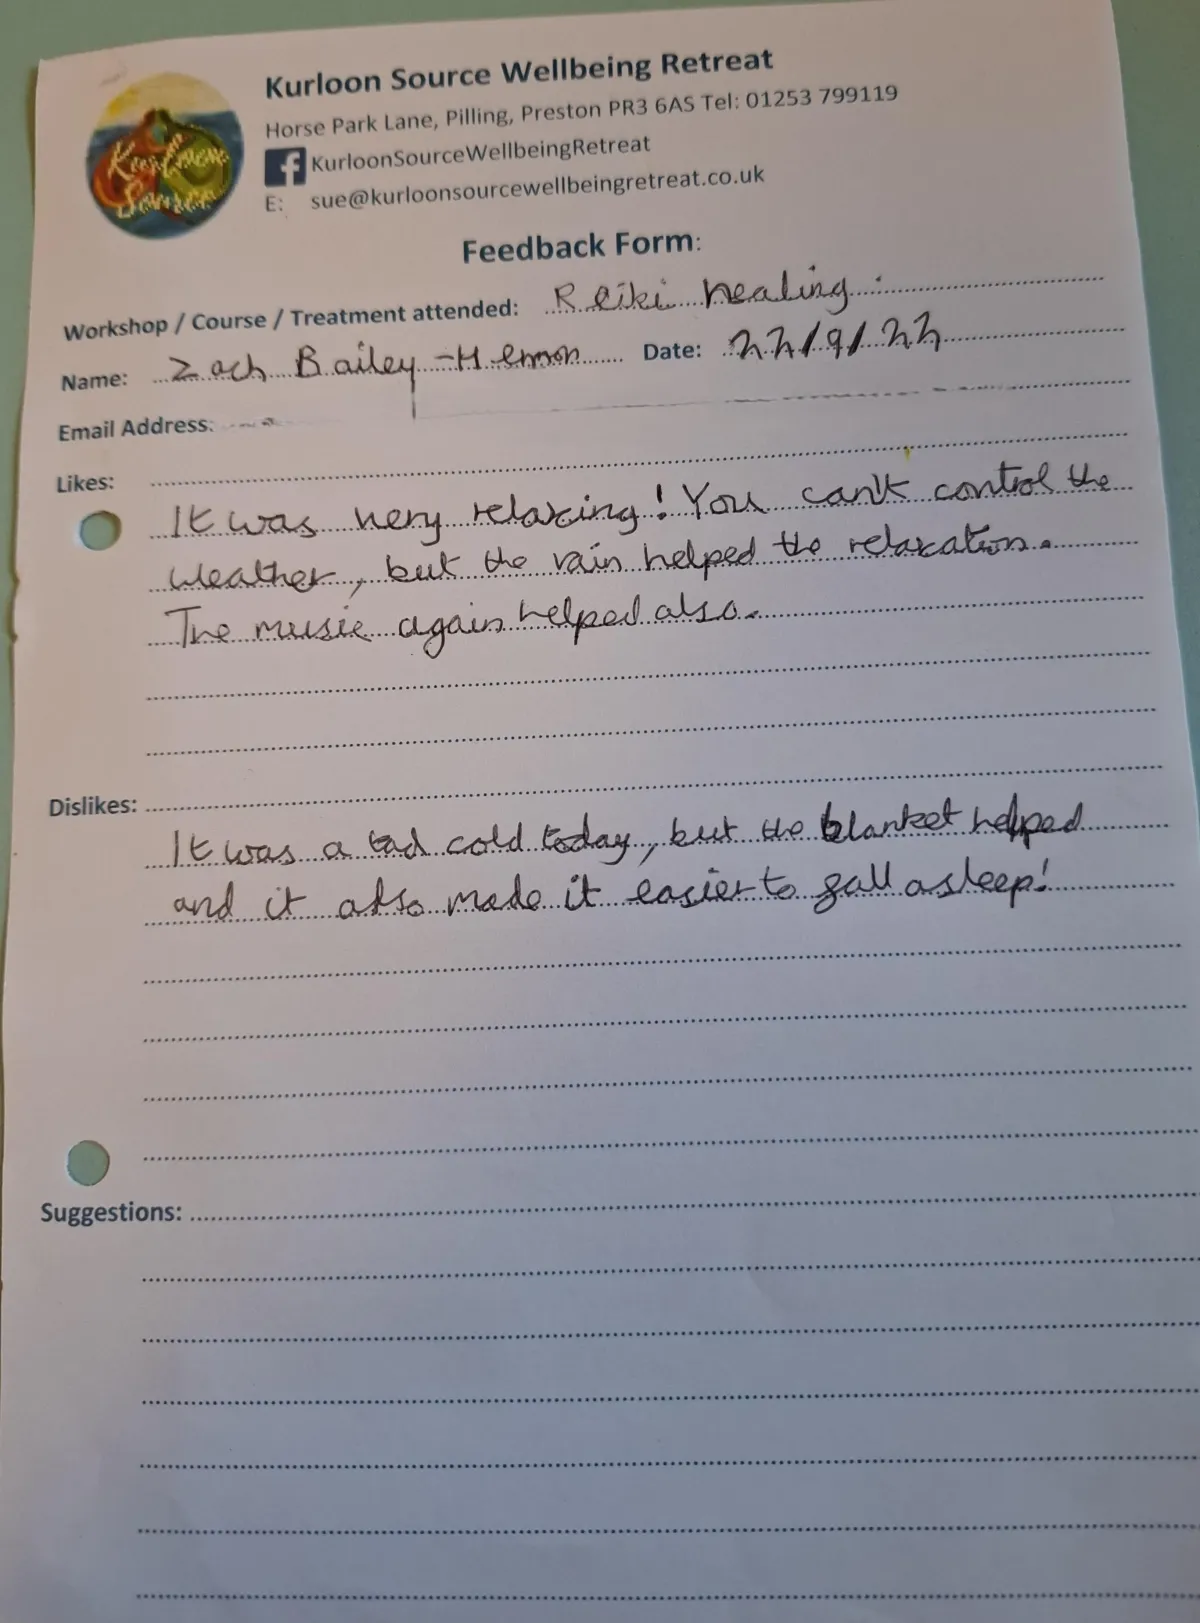 Kurloon Source
Kurloon Source Wellbeing Retreat
Horse Park Lane, Pilling, Preston PR3 6AS Tel: 01253 799119
KurloonSourceWellbeingRetreat
E: sue@kurloonsourcewellbeingretreat.co.uk
Feedback Form:
Workshop / Course / Treatment attended: Reiki healing
Name: Zach Bailey-Hemon Date: 22/9/22
Email Address:
Likes:
It was very relaxing! You can't control the
weather, but the rain helped the relaxation.
The music again helped also.
Dislikes:
It was a tad cold today, but the blanket helped
and it also made it easier to fall asleep!
Suggestions: